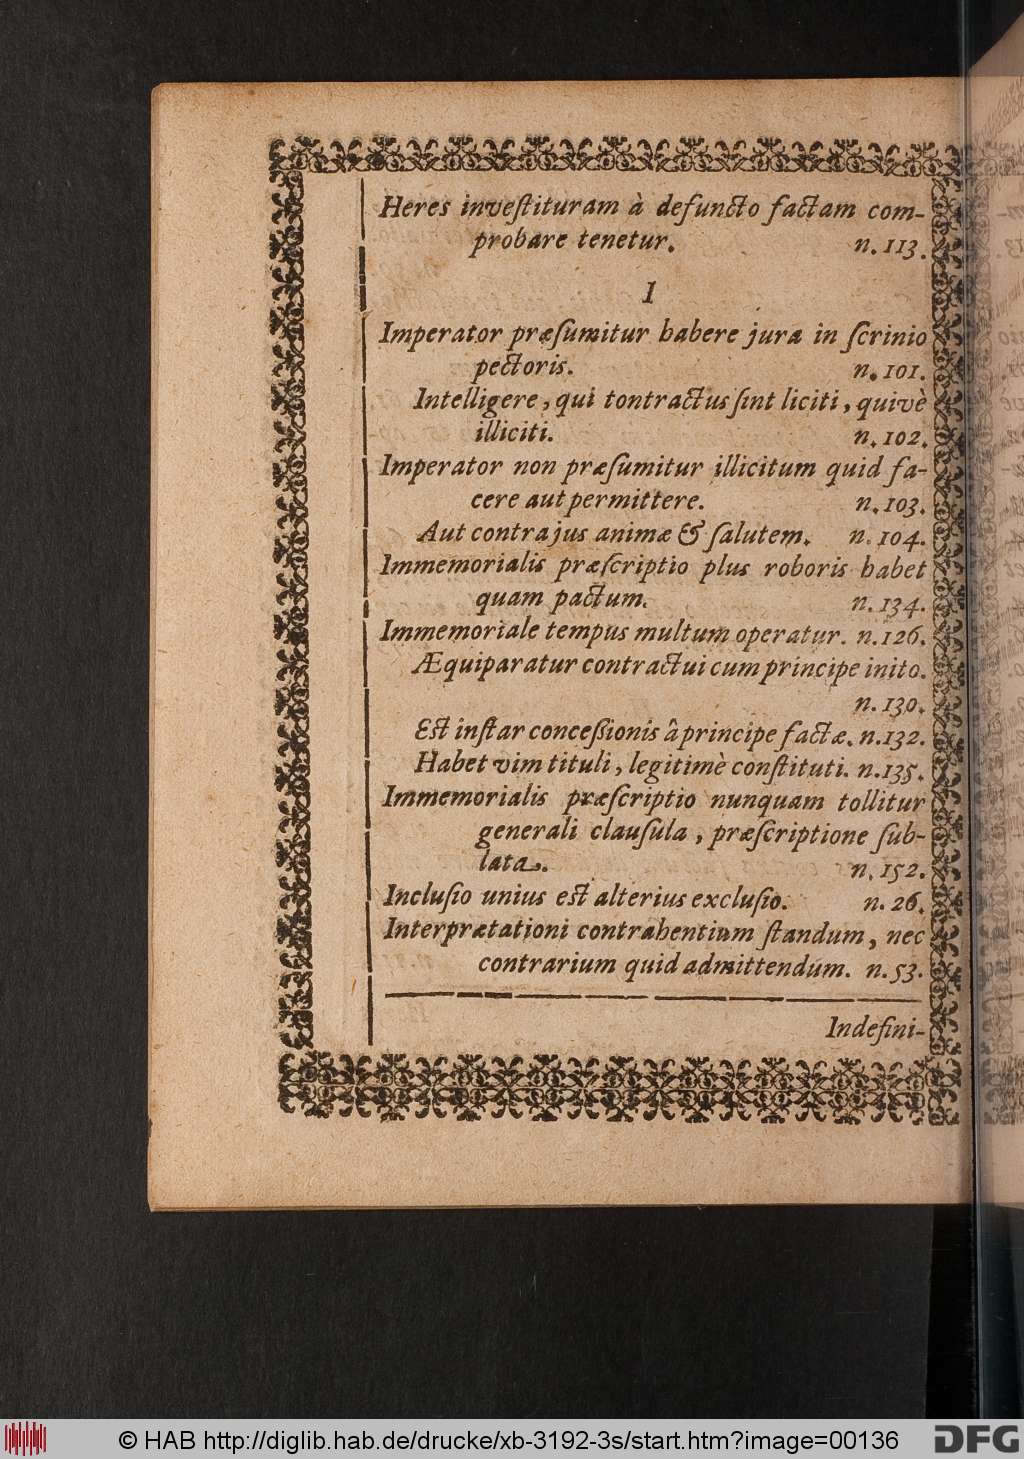 Heres inveſtituram à defuncto factam com-
probare tenetur. n. 113.
I
Imperator præſumitur habere jura in ſcrinio
pectoris. n. 101.
Intelligere, qui tontractus ſint liciti, quivè
illiciti. n. 102.
Imperator non præſumitur illicitum quid fa-
cere aut permittere. n. 103.
Aut contra jus animæ & ſalutem. n. 104.
Immemorialis præſcriptio plus roboris habet
quam pactum. n. 134.
Immemoriale tempus multum operatur. n. 126.
Æquiparatur contractui cum principe inito.
n. 130.
Est inſtar conceßionis â principe factæ. n. 132.
Habet vim tituli, legitimè conſtituti. n. 135.
Immemorialis præſcriptio nunquam tollitur
generali clauſula, præſcriptione ſub-
lata. n. 152.
Incluſio unius est alterius excluſio. n. 26.
Interprætationi contrahentium ſtandum, nec
contrarium quid admittendum. n. 53.
Indefini-
© HAB http://diglib.hab.de/drucke/xb-3192-3s/start.htm?image=00136
DFG